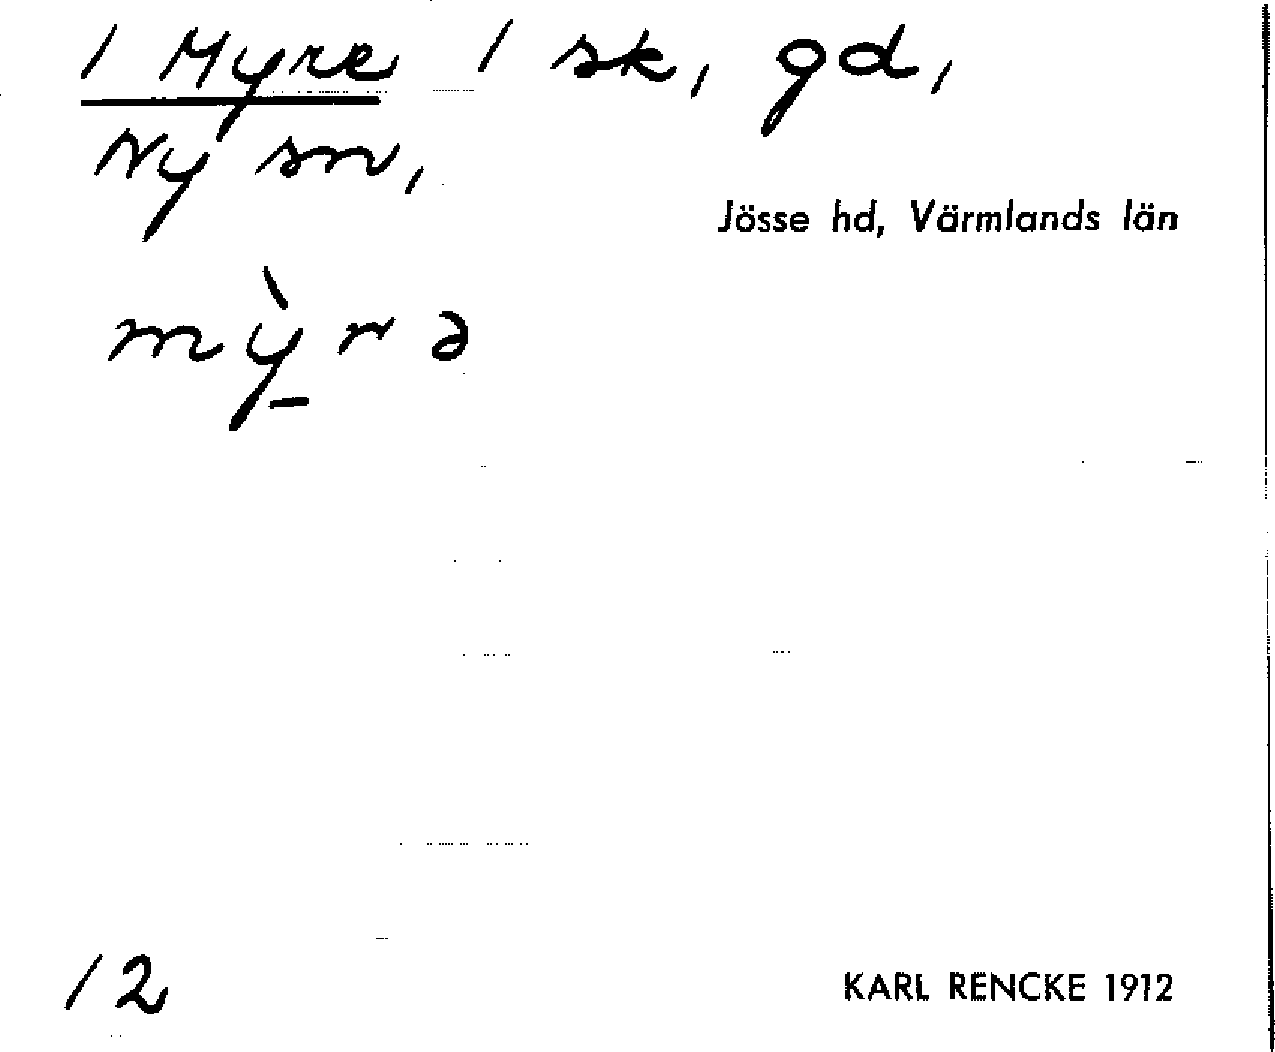 / Myre / sk, gd,
Ny sn,
Jösse hd, Värmlands län
mỳ̠rə
12
KARL RENCKE 1912